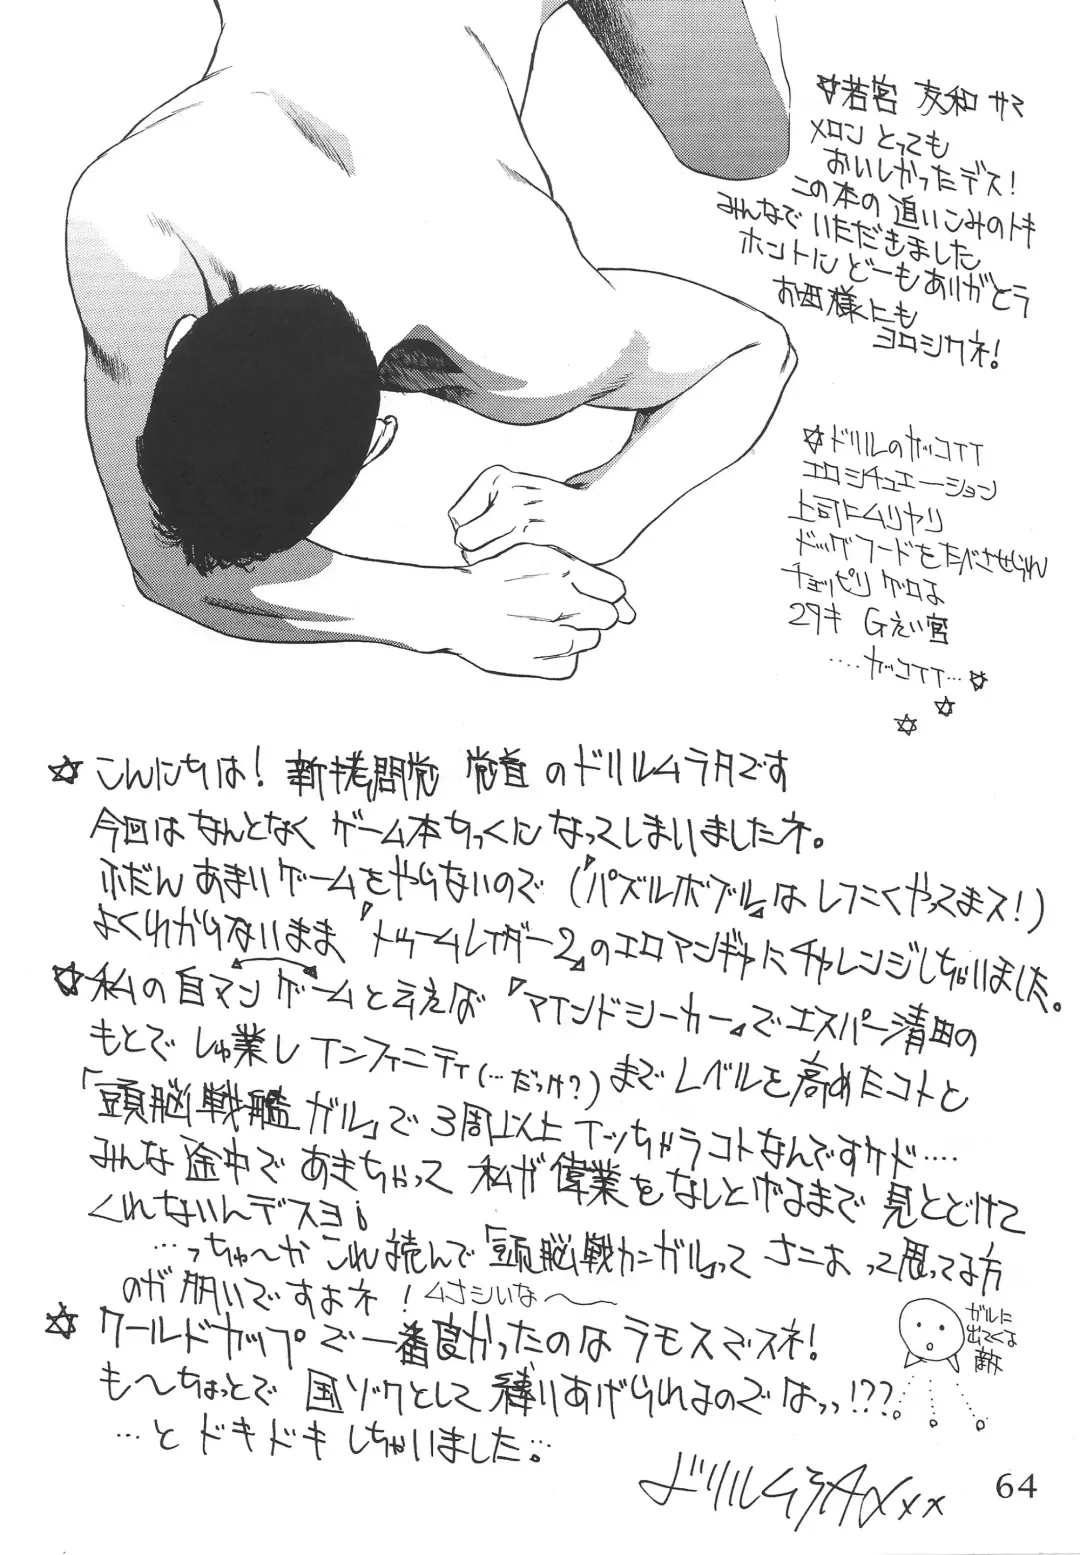 ☆若宮 友和 サマ
メロン とっても
おいしかったデス!
この本の 追いこみのトキ
みんなで いただきました
ホントに どーもありがとう
お母様にも
ヨロシクネ!
☆ドリルのカッコイイ
エロシチュエーション
上司にムリヤリ
ドッグフードをたべさせられ
チョッピリ ゲロな
カッコイイ…☆
☆こんにちは! 新拷問党 党首 のドリルムラタです
今回は なんとなく ゲーム本 ちっくに なってしまいましたネ。
ふだん あまりゲームをやらないので (『パズルボブル』は しつこくやってまス!)
よくわからないまま 『トゥームレイダー2』のエロマンガにチャレンジしちゃいました。
☆私の自マンゲームと云えば 『マインドシーカー』でエスパー清田の
もとで しゅ業し インフィニティ(…だっけ?)まで レベルを高めたコトと
「頭脳戦艦ガル」で 3周以上 イッちゃうコトなんですケド‥‥
みんな 途中で あきちゃって 私が 偉業を なしとげるまで 見とどけて
くれないんデスヨ!
…っちゅ〜か これ読んで「頭脳戦カンガル」って ナニよ って思ってる方
のが 多いですよネ! ムナシいな〜
ガルに
出てくる
敵
☆ワールドカップで一番良かったのは ラモスですネ!
も〜ちょっとで 国ゾクとして 縛りあげられるのでは っっ!??
…と ドキドキ しちゃいました…
ドリルムラタ xx
64